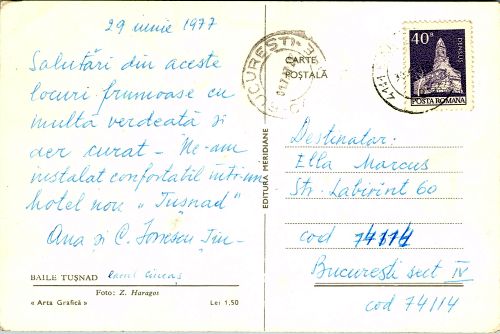 29 iunie 1977
Salutări din aceste
locuri frumoase cu
multă verdeată și
aer curat – Ne-am
instalat confortabil intr-un
hotel nou „Tușnad"
Ana și C. Ionescu Tiu-
BAILE TUȘNAD
Foto: Z. Haragos
« Arta Grafică »
Lei 1,50
EDITURA MERIDIANE
BUCUREȘTI
CARTE
POȘTALĂ
40B
DENSUȘ
POSTA ROMANA
4141
Destinatar:
Ella Marcus
Str. Labirint 60
cod 74114
București sect IV
cod 74114